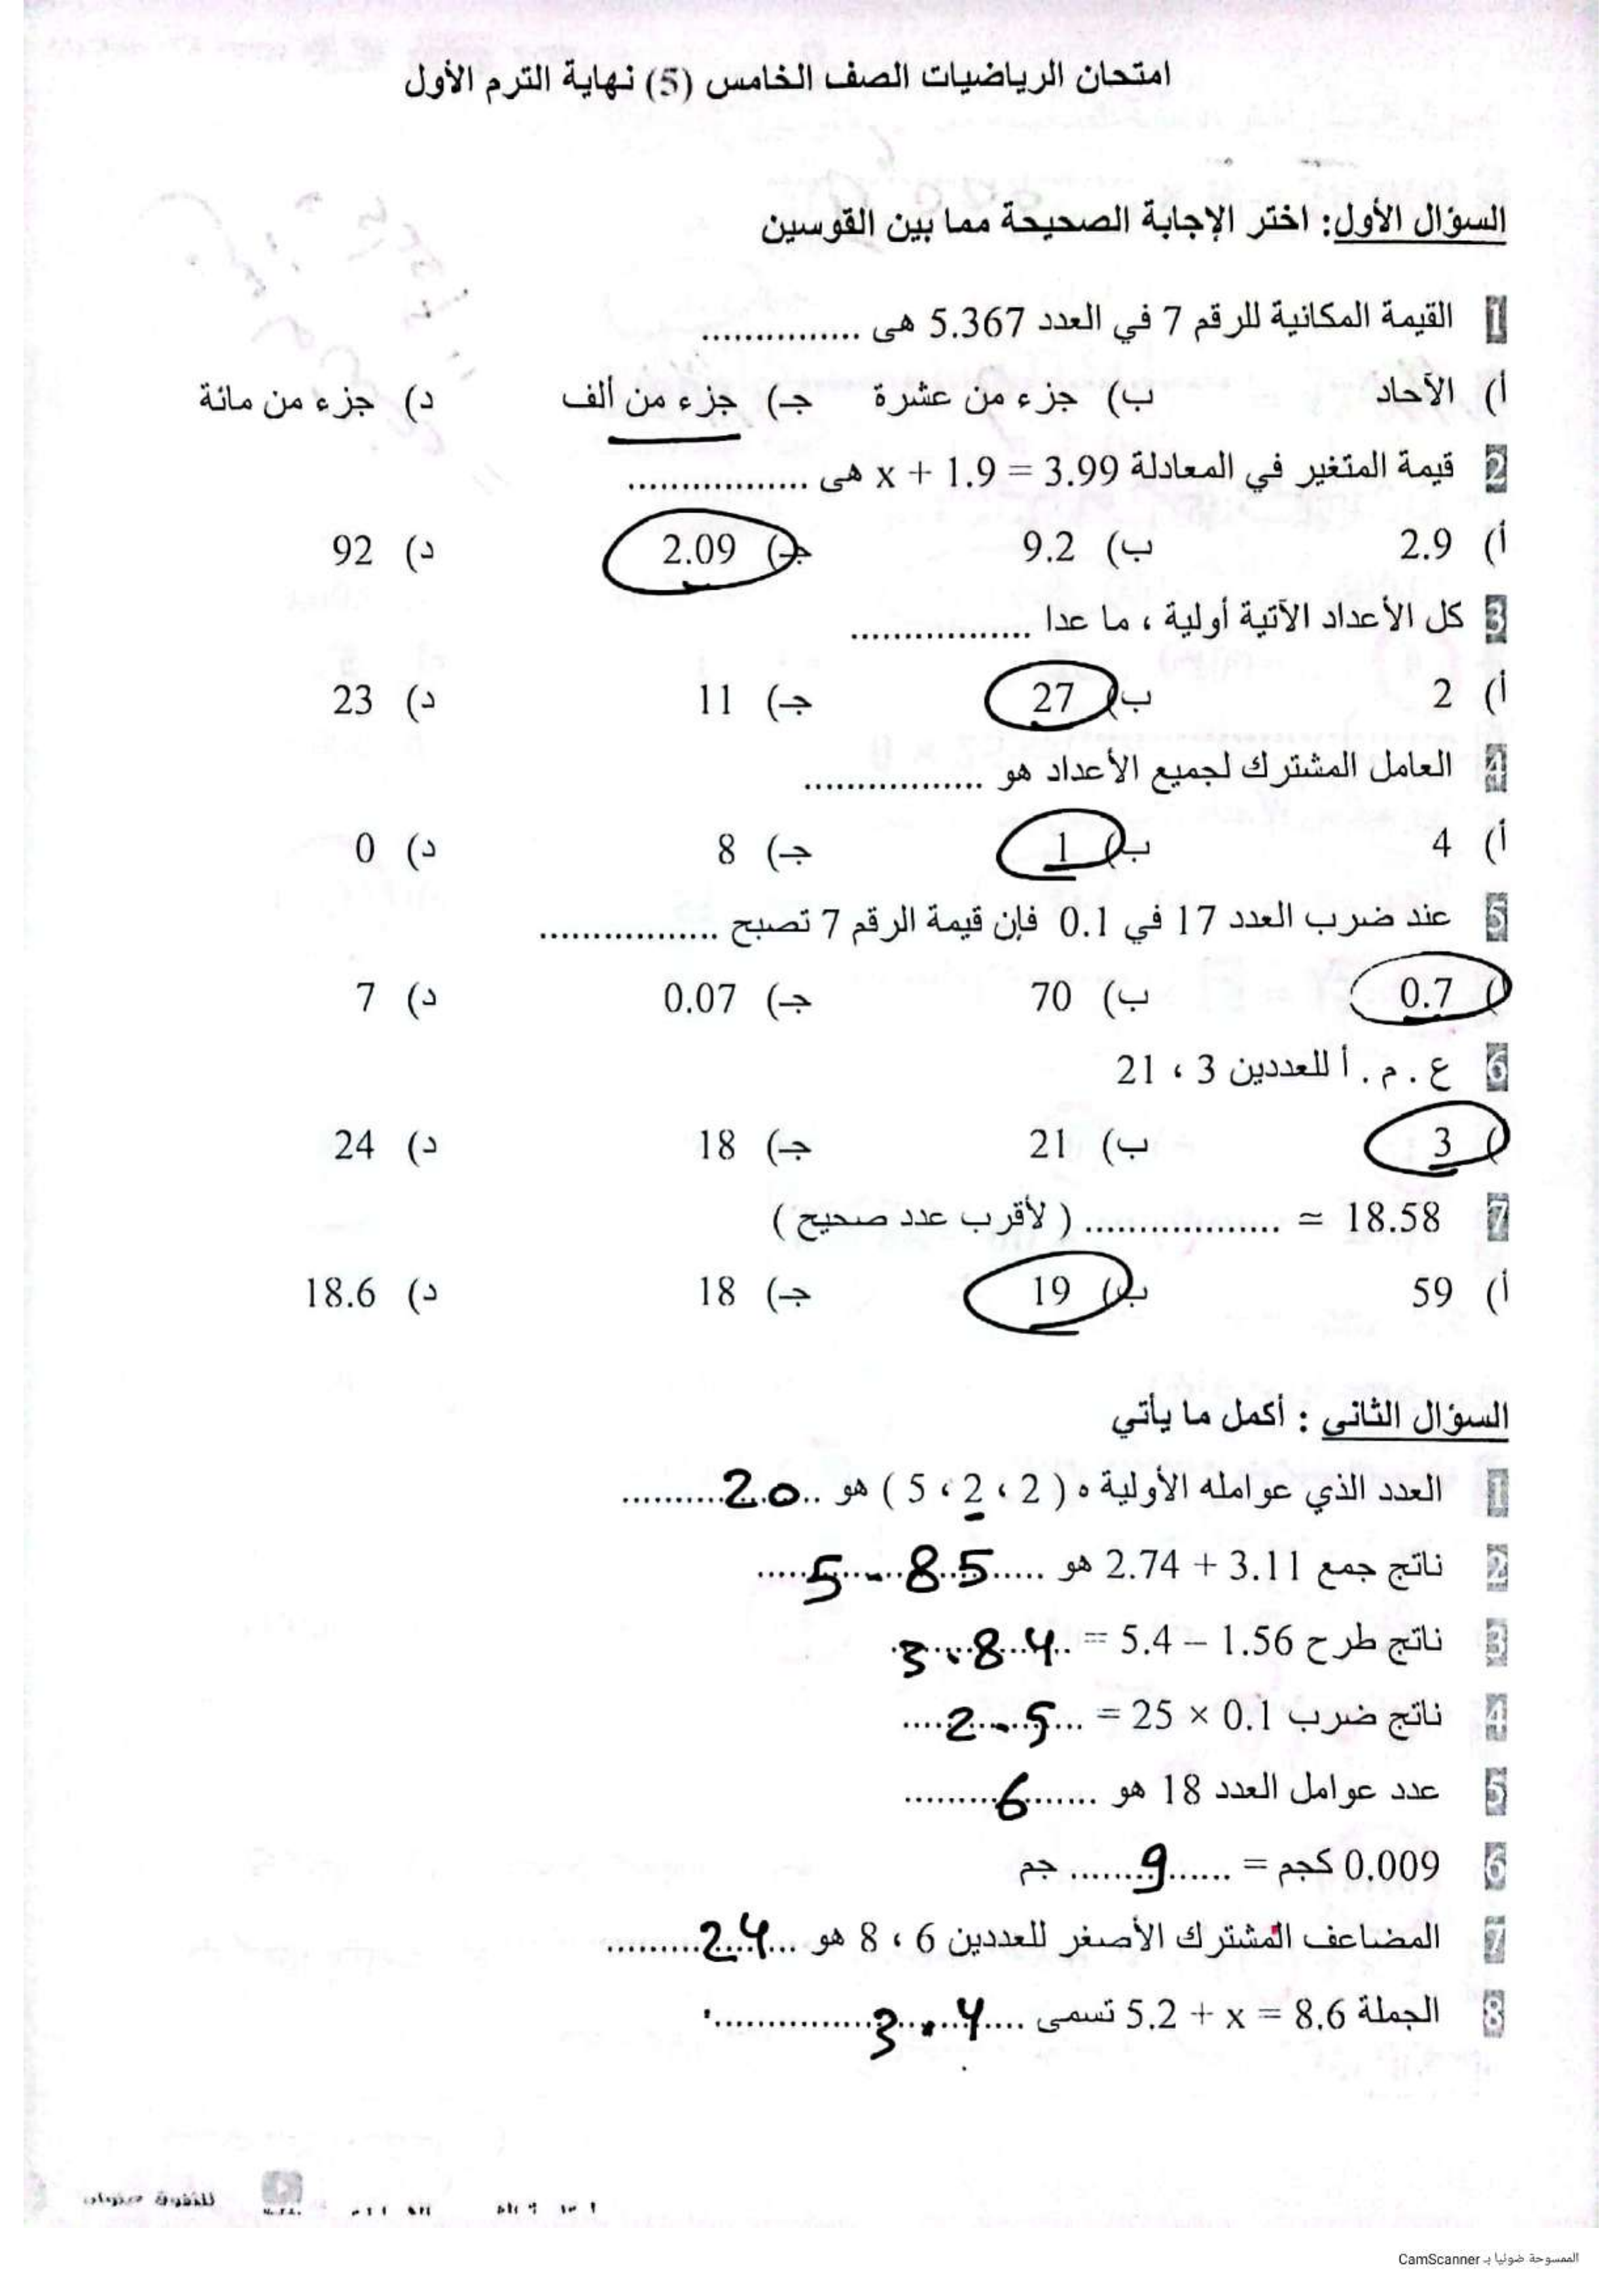 امتحان الرياضيات الصف الخامس (5) نهاية الترم الأول
السؤال الأول: اختر الإجابة الصحيحة مما بين القوسين
1 القيمة المكانية للرقم 7 في العدد 5.367 هى ...............
أ) الآحاد ب) جزء من عشرة جـ) جزء من ألف د) جزء من مائة
2 قيمة المتغير في المعادلة x + 1.9 = 3.99 هى .................
أ) 2.9 ب) 9.2 جـ) 2.09 د) 92
3 كل الأعداد الآتية أولية ، ما عدا .................
أ) 2 ب) 27 جـ) 11 د) 23
4 العامل المشترك لجميع الأعداد هو .................
أ) 4 ب) 1 جـ) 8 د) 0
5 عند ضرب العدد 17 في 0.1 فإن قيمة الرقم 7 تصبح .................
أ) 0.7 ب) 70 جـ) 0.07 د) 7
6 ع . م . أ للعددين 3 ، 21
أ) 3 ب) 21 جـ) 18 د) 24
7 18.58 ≃ .................. ( لأقرب عدد صحيح )
أ) 59 ب) 19 جـ) 18 د) 18.6
السؤال الثانى : أكمل ما يأتي
1 العدد الذي عوامله الأولية ه ( 2 ، 2 ، 5 ) هو ..20..........
2 ناتج جمع 3.11 + 2.74 هو .....5.85.....
3 ناتج طرح 1.56 – 5.4 = ..3.84.
4 ناتج ضرب 0.1 × 25 = ...2.5....
5 عدد عوامل العدد 18 هو .......6.........
6 0.009 كجم = ......9....... جم
7 المضاعف المشترك الأصغر للعددين 6 ، 8 هو ...24.........
8 الجملة 5.2 + x = 8.6 تسمى ....3.4...............
الممسوحة ضوئيا بـ CamScanner